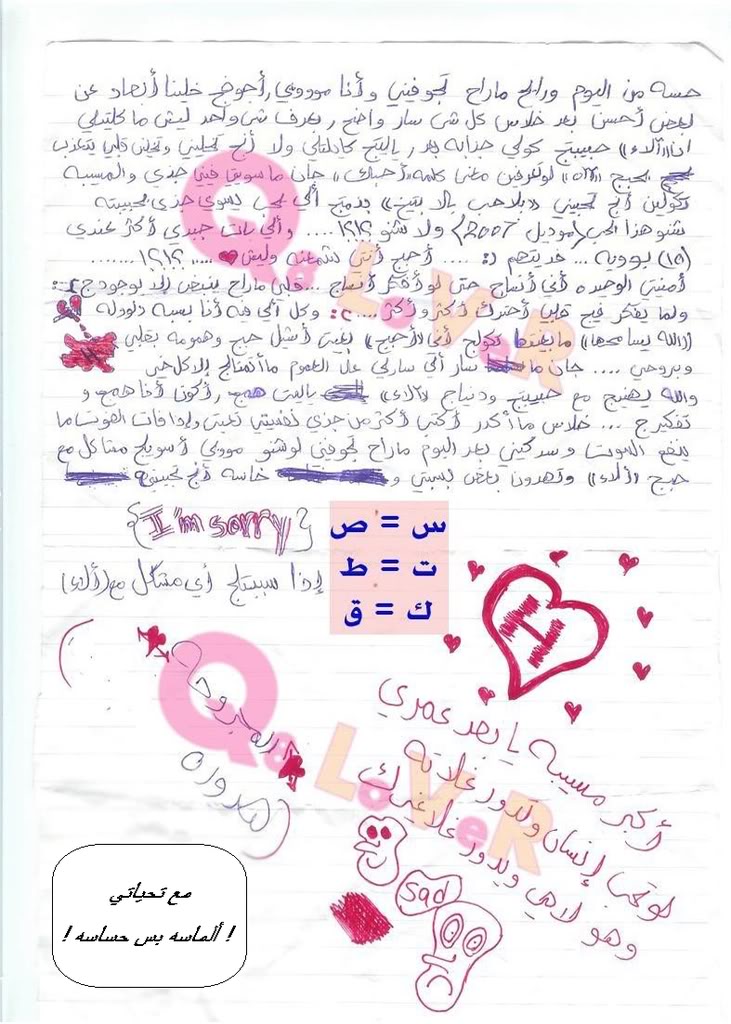 حسه من اليوم ورايح ماراح تجوفيني وأنا موودي أجوفج خلينا أبعاد عن
بعض أحسن بعد خلاس كل شي سار واضح بعرف شي واحد ليش ما كلتيلي
ان «آلاء» حبيبتج كولي جذابه بعد ياليتج كادلتني ولا أنج تحبيني وتخين قلبي يتعذب
بحبج «الآه» لو تعرفين معنى كلمة «أحبك» جان ما سويتي فيني جذي والمسيبه
تكولين أنج تحبيني «بلا حب بلا بتيخ» بذمتج ألي يحب يسوي جذي بحبيبته
شنو هذا الحب (موديل 2007) ولا شنو ؟!؟! .... وألي
أكثر عندي
(١٥) يوويه ... خديتهم :د .... أحبج أنتي وليش ..... ؟!؟!
.......
أمنيتي الوحيده أني أنساج حتى لو أفتكر أنساج ... قلبي ماراح ينبض إلا لوجودج :
ولما يفكر فيج قلبي أحترك أكثر وأكثر .... : وكل ألي فيه أنا بسبه دلوله
(الله يسامحها) ما بغيتها تكولج أني «أحبج» بغيت أشيل حبج وهمومه بقلبي
وبروحي .... جان ما سار ألي سارلي علا العموم ماأتمنالج إلا كل خير
والله يهنيج مع حبيبتج ودنياج «آلاء»
تفكيرج ... خلاس ما أكدر أكتب أكثر من جذي نفسيتي تعبت وإذا فات الفوت ما
ينفع السوت وسدكيني بعد اليوم ماراح تجوفيني لو شنو موودي أسويلج مشاكل مع
حبج «آلاء» وتهدون بعض بسبتي و خاسه أنج تحبينه
{I'm sorry}
س = ص
ت = ط
ك = ق
إذا سببتلج أي مشاكل مع (ألاء)
H
المجروحه
أكبر مسيبه يا بعد عمري
لو تحب إنسان وتدور غلاته
وهو لاهي ويدور غلا غيرك
sad
Qa LoVeR
Qa LoVeR
مع تحياتي
! ألماسه بس حساسه !